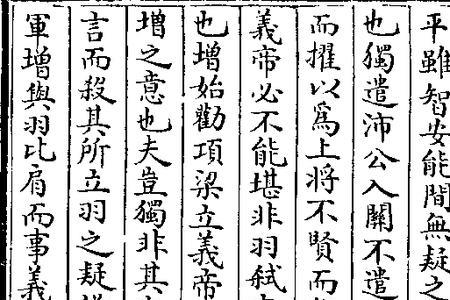 平雖智安能間無疑之
也獨遣沛公入關不遣
而擢以爲上將不賢而
義帝必不能堪非羽弑
也增始勸項梁立義帝
增之意也夫豈獨非其
言而殺其所立羽之疑
軍增與羽比肩而事義